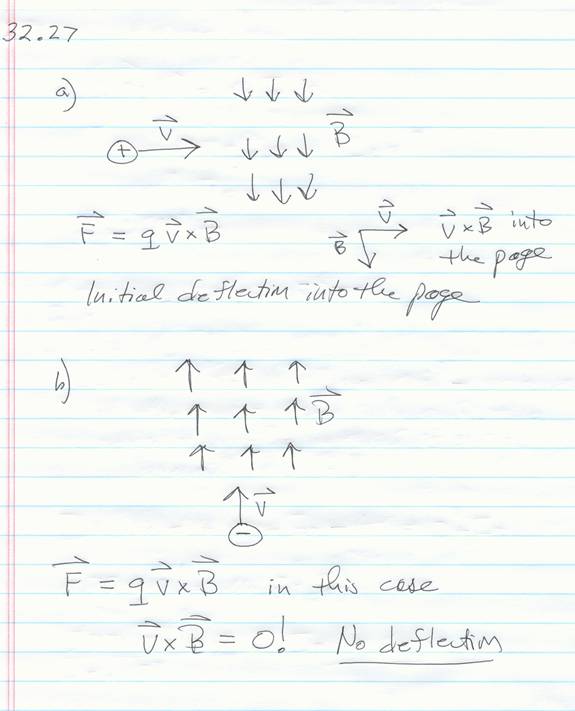 32.27
a)
V⃗
B⃗
+
F⃗ = q v⃗ x B⃗
V⃗
B⃗
v⃗ x B⃗ into
the page
Initial deflection into the page
b)
B⃗
V⃗
−
F⃗ = q v⃗ x B⃗ in this case
v⃗ x B⃗ = 0! No deflection